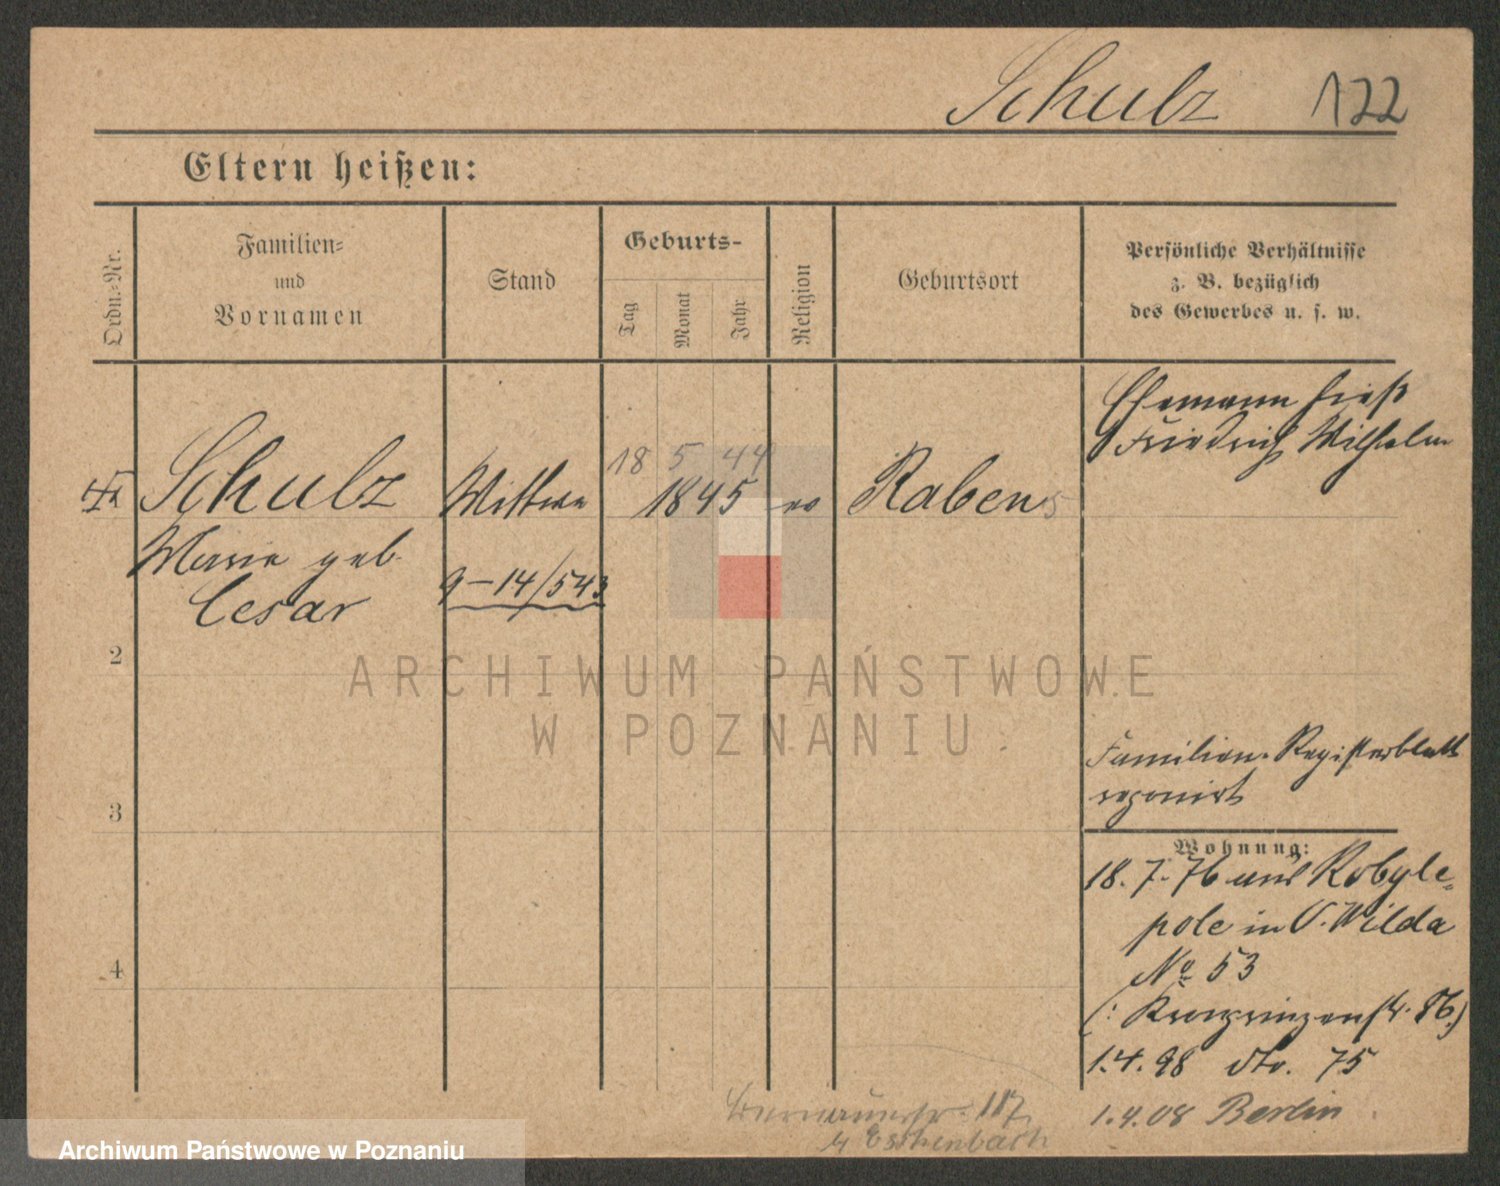 Schulz 122
Eltern heißen:
Ordn.-Nr.
Familien-
und
Vornamen
Stand
Geburts-
Tag
Monat
Jahr
Religion
Geburtsort
Persönliche Verhältnisse
z. B. bezüglich
des Gewerbes u. s. w.
Ehemann hieß
Friedrich Wilhelm
18 5 44
Schulz Wittwe 1845 ev Rabens
Marie geb.
Cesar
9-14/543
2
ARCHIWUM PAŃSTWOWE
W POZNANIU
Familien-Registerblatt
reponirt
3
Wohnung:
18.7.76 aus Kobyle-
pole in O. Wilda
No 53
4
(: Kronprinzenstr. 86.)
1.4.98 dto. 75
1.4.08 Berlin
187
Eschenbach
Archiwum Państwowe w Poznaniu